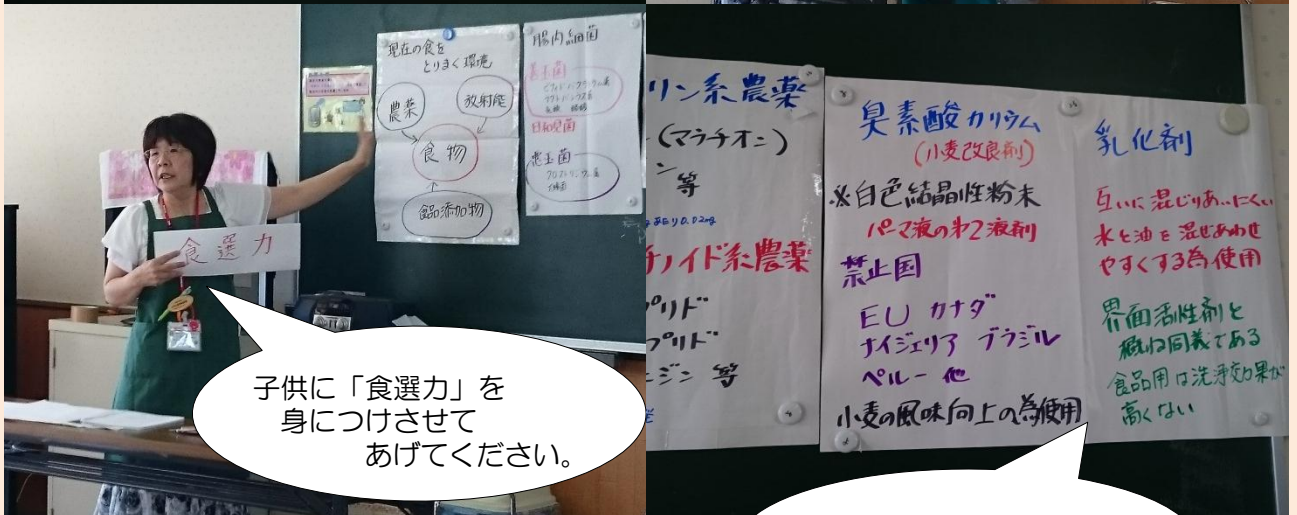 現在の食を
とりまく環境
農薬
放射能
食物
食品添加物
腸内細菌
善玉菌
日和見菌
悪玉菌
食選力
子供に「食選力」を
身につけさせて
あげてください。
リン系農薬
(マラチオン)
ン
等
0.02mg
チノイド系農薬
プリド
プリド
ジン 等
臭素酸カリウム
(小麦改良剤)
※白色結晶性粉末
パーマ液の第2液剤
禁止国
EU カナダ
ナイジェリア ブラジル
ペルー 他
小麦の風味向上の為使用
乳化剤
互いに混じりあいにくい
水と油を混ぜあわせ
やすくする為使用
界面活性剤と
概ね同義である
食品用は洗浄効果が
高くない